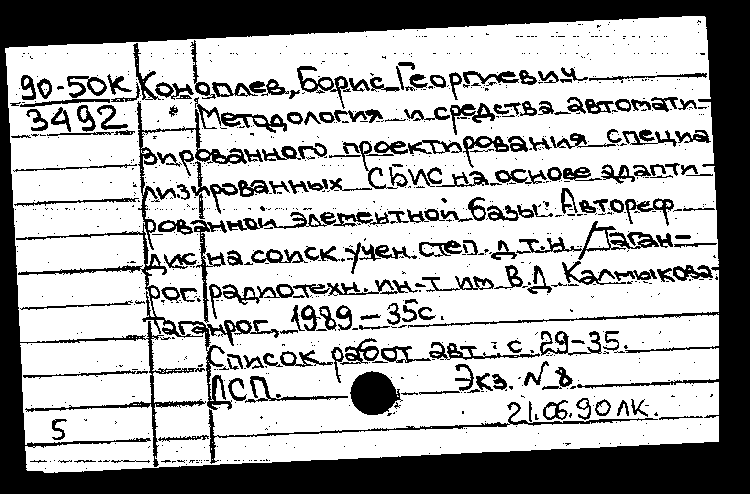 90-50К Коноплев, Борис Георгиевич
3492 * Методология и средства автомати-
зированного проектирования специа
лизированных СБИС на основе адапти-
рованной элементной базы: Автореф
дис на соиск учен. степ. д.т.н. / Таган-
рог. радиотехн. ин-т им В.Д. Калмыкова.
Таганрог, 1989.-35с.
Список работ авт.: с.29-35.
ДСП. Экз. N 8.
21.06.90 ЛК.
5